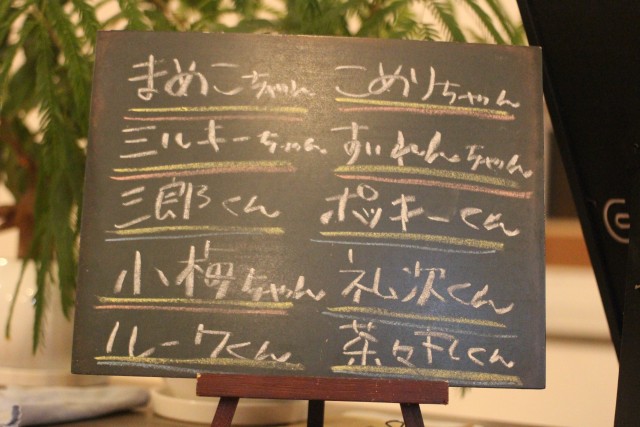 まめこちゃん こめりちゃん
ミルキーちゃん すいれんちゃん
三郎くん ポッキーくん
小梅ちゃん 礼次くん
ルークくん 茶々丸くん